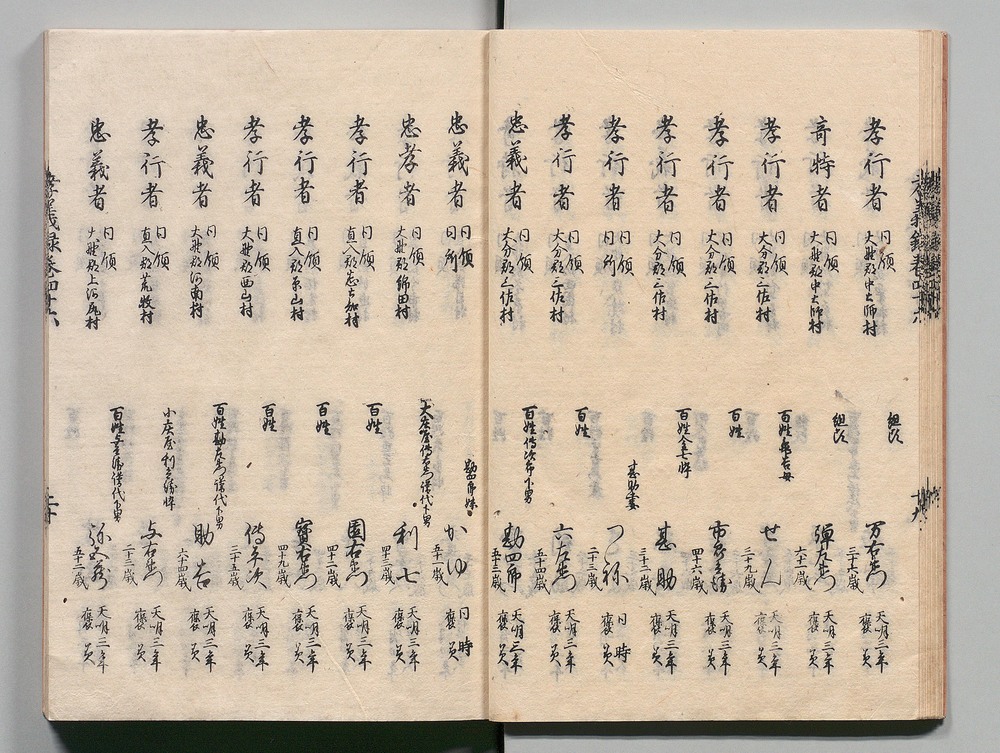 孝行者 同領 大野郡中土師村 組頭 万右衛門 三十六歳 天明三年 褒美
奇特者 同領 大野郡中土師村 組頭 弾右衛門 六十一歳 天明三年 褒美
孝行者 同領 大分郡三佐村 百姓 母 せん 三十九歳 天明三年 褒美
孝行者 同領 大分郡三佐村 百姓 四十六歳 天明三年 褒美
孝行者 同領 大分郡三佐村 百姓 金七悴 甚助 三十二歳 天明三年 褒美
孝行者 同領 同所 甚助妻 つね 二十三歳 同時 褒美
孝行者 同領 大分郡三佐村 百姓 六左衛門 五十四歳 天明三年 褒美
忠義者 同領 大分郡三佐村 百姓傳次郎下男 勘四郎 五十三歳 天明三年 褒美
忠義者 同領 同所 勘四郎妹 かゆ 五十一歳 同時 褒美
忠孝者 同領 大野郡師田村 大庄屋傳右衛門譜代下男 利七 四十三歳 天明三年 褒美
孝行者 同領 直入郡志土知村 百姓 園右衛門 四十三歳 天明三年 褒美
孝行者 同領 直入郡原山村 百姓 寶右衛門 四十九歳 天明三年 褒美
孝行者 同領 大野郡西山村 百姓 傳次 三十五歳 天明三年 褒美
忠義者 同領 大野郡河南村 百姓勘左衛門譜代下男 助吉 六十四歳 天明三年 褒美
孝行者 同領 直入郡荒牧村 小庄屋利 悴 与右衛門 二十三歳 天明三年 褒美
忠義者 同領 大野郡上河尻村 百姓 譜代下男 五十二歳 天明三年 褒美
孝義録巻四十六